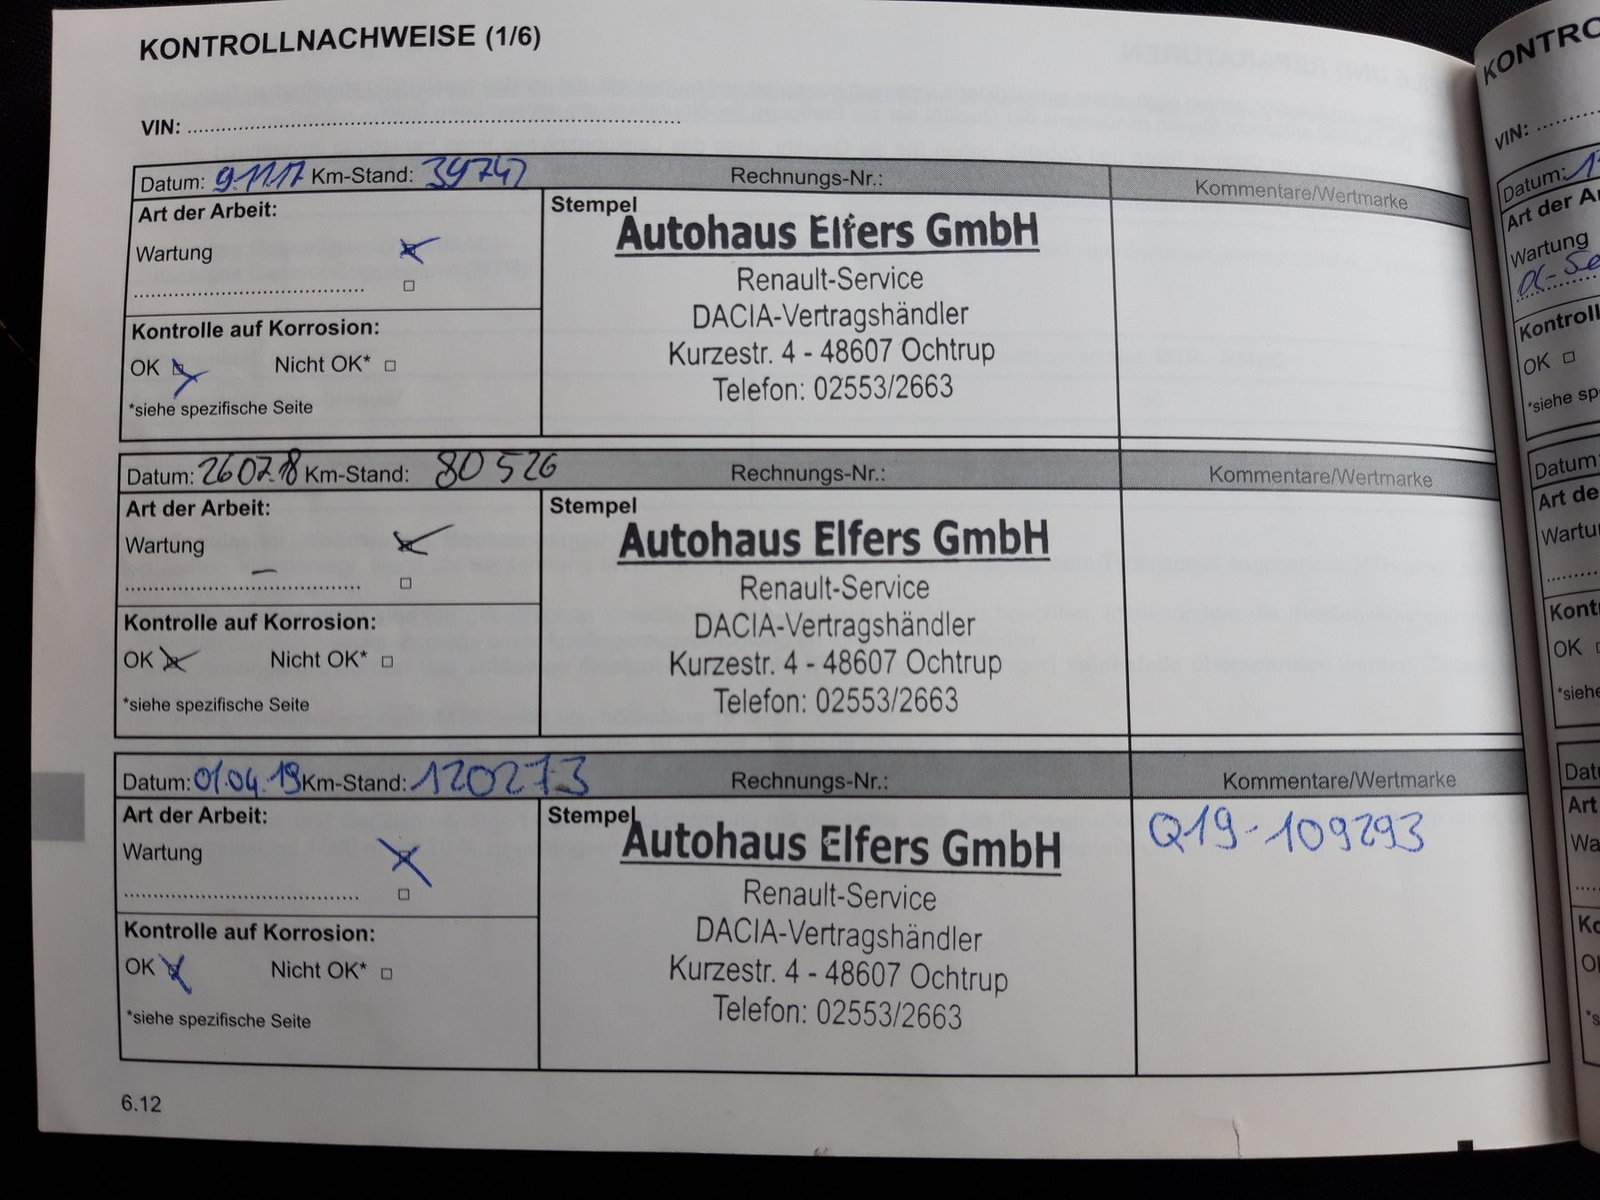 KONTROLLNACHWEISE (1/6)
VIN: ..........
Datum: 9.11.17 Km-Stand: 39747 Rechnungs-Nr.: Kommentare/Wertmarke
Art der Arbeit:
Wartung
Kontrolle auf Korrosion:
OK Nicht OK*
*siehe spezifische Seite
Stempel
Autohaus Elfers GmbH
Renault-Service
DACIA-Vertragshändler
Kurzestr. 4 - 48607 Ochtrup
Telefon: 02553/2663
Datum: 26.07.18 Km-Stand: 80 526 Rechnungs-Nr.: Kommentare/Wertmarke
Art der Arbeit:
Wartung
Kontrolle auf Korrosion:
OK Nicht OK*
*siehe spezifische Seite
Stempel
Autohaus Elfers GmbH
Renault-Service
DACIA-Vertragshändler
Kurzestr. 4 - 48607 Ochtrup
Telefon: 02553/2663
Datum: 01.04.19 Km-Stand: 120273 Rechnungs-Nr.: Kommentare/Wertmarke
Art der Arbeit:
Wartung
Kontrolle auf Korrosion:
OK Nicht OK*
*siehe spezifische Seite
Stempel
Autohaus Elfers GmbH
Renault-Service
DACIA-Vertragshändler
Kurzestr. 4 - 48607 Ochtrup
Telefon: 02553/2663
Q19-109293
6.12
VIN:
Datum:
Art der
Wartung
OK
Datum
Art de
OK
Art